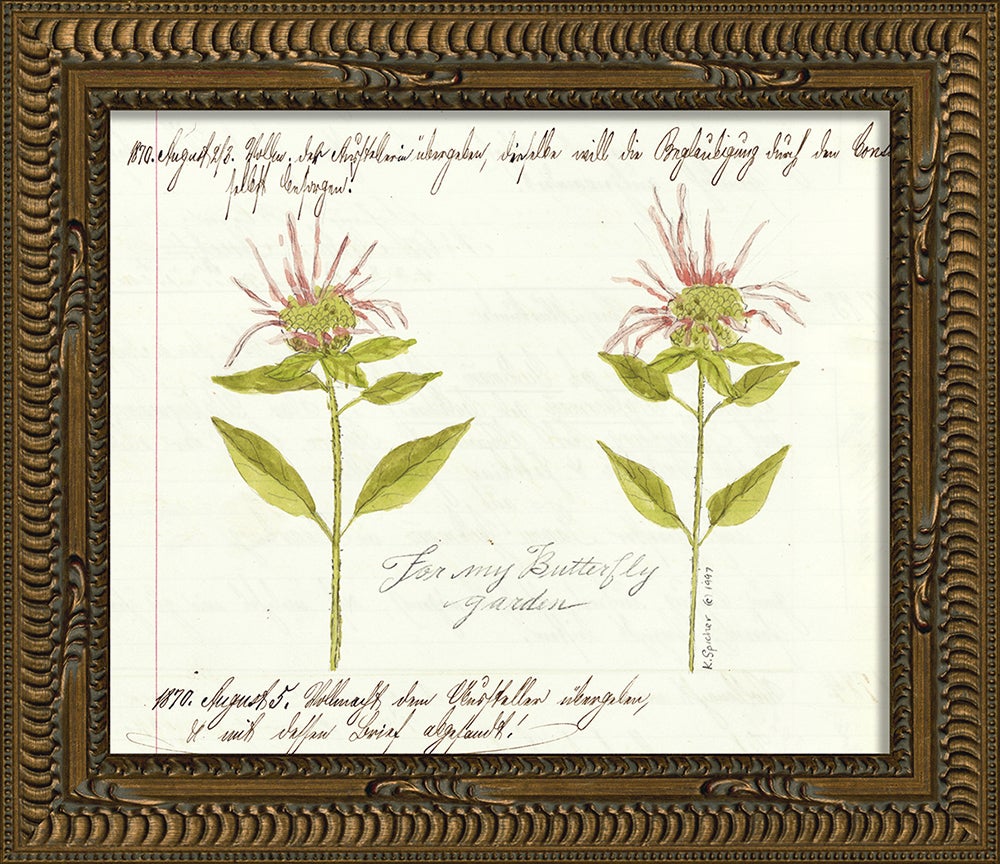 1870. August 2/3. Vollm. der Ausstellerin übergeben, dieselbe will die Beglaubigung durch den Cons
selbst besorgen.
For my Butterfly
garden
K. Spicher (c) 1997
1870. August 5. Vollmacht dem Aussteller übergeben,
& mit dessen Brief abgesandt!